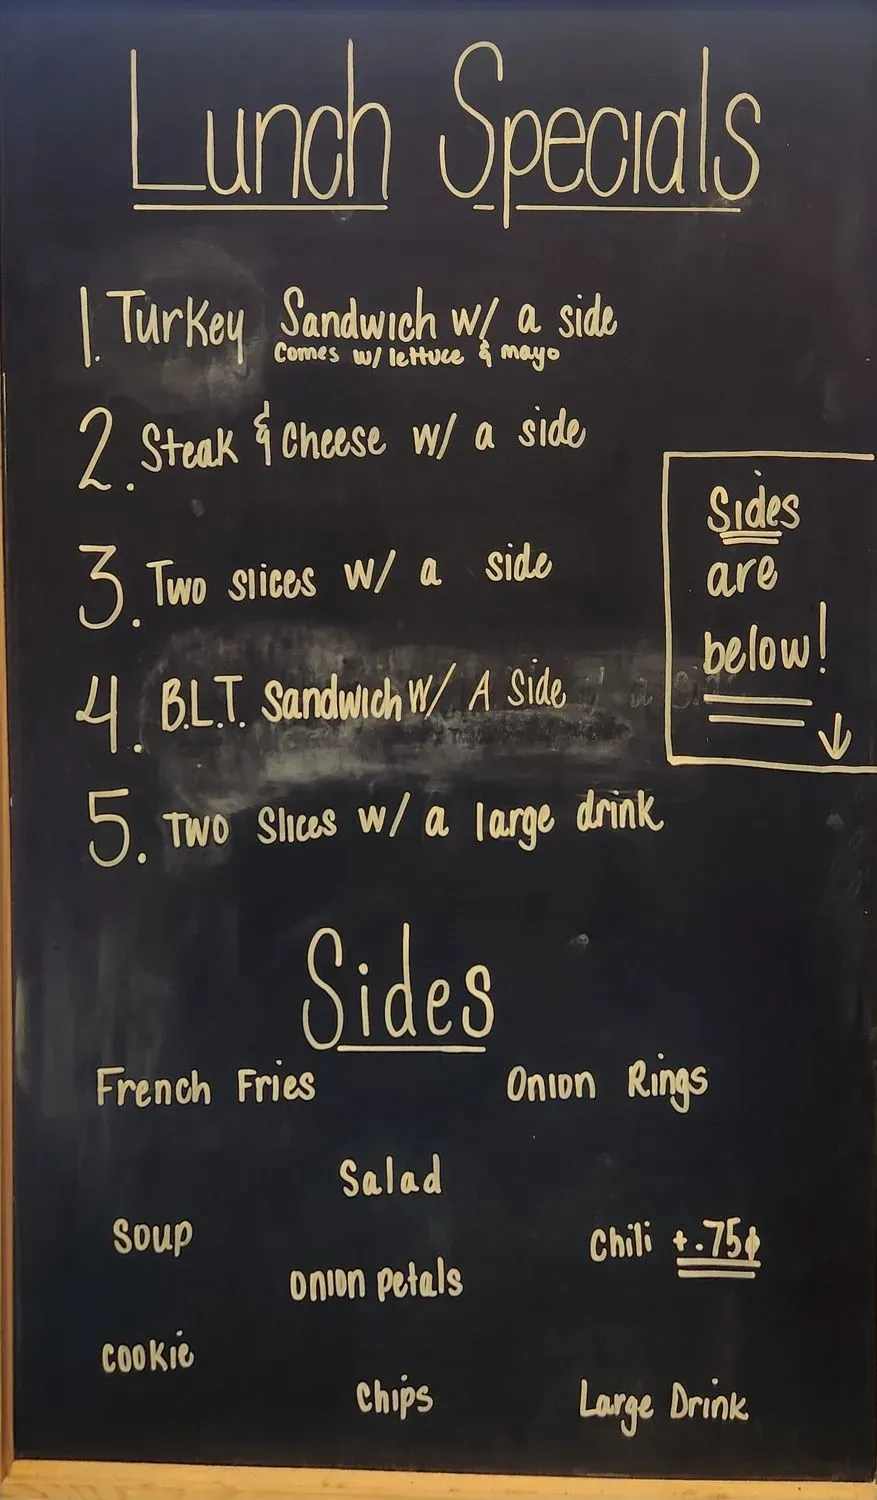 Lunch Specials
1. Turkey Sandwich w/ a side
Comes w/ lettuce & mayo
2. Steak & Cheese w/ a side
3. Two slices w/ a side
4. B.L.T. Sandwich W/ A Side
5. Two Slices w/ a large drink
Sides
are
below!
Sides
French Fries Onion Rings
Salad
Soup Chili +.75¢
onion petals
cookie
Chips Large Drink